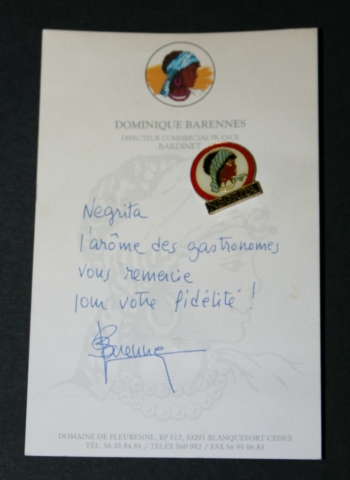 DOMINIQUE BARENNES
DIRECTEUR COMMERCIAL FRANCE
BARDINET
NEGRITA
Negrita
l'arôme des gastronomes
vous remercie
pour votre fidélité !
Barennes
DOMAINE DE FLEURENNE, BP 513, 33291 BLANQUEFORT CEDEX
TÉL. 56 35 84 85 / TELEX 560 982 / FAX 56 95 06 83